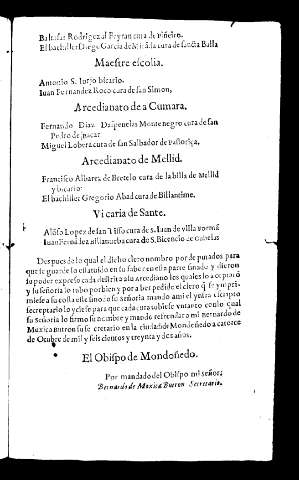 Baltasar Rodrigez al Peyran cura de Piñeiro.
El bachiller Diego Garcia de Miranda cura de sancta Balla
Maestre escolia.
Antonio S. Iurjo bicario.
Iuan Fernandez Roco cura de san Simon,
Arcedianato de a Cumara,
Fernando Diaz Daspenelas Montenegro cura de san
Pedro de
Miguel Lobera cura de san Salbador de
Arcedianato de Mellid.
Francisco Albarez de Bretelo cura de la billa de Mellid
y bicario:
El bachiller Gregorio Abad cura de
Vicaria de Sante.
Lopez de san cura de S. Iuan de villa
Iuan Fernãdez villanueba cura de S. Bicencio de
Despues de lo qual el dicho clero nombro por deputados para
que se guarde lo estatuido en su fabor en esta parte sinado y dieron
su poder expreso cada destrito a su arcediano los quales lo aceptarõ
y su señoria lo tobo por bien y por a ber pedido el clero q̃ se ynpri-
miese a su costa este sinodo su señoria mando ami el ynfra escrpto
secreptario lo yciese para que cada cura tubiese vn tanto con lo qual
su Señoria lo firmo su nombre y mando refrendar a mi Bernardo de
Moxica butron su secretario en la ciudad de Mondoñedo a catorce
de Otubre de mil y seis cientos y treynta y dos años.
El Obispo de Mondoñedo.
Por mandado del Obispo mi señor:
Bernardo de Moxica Butron Secretario.